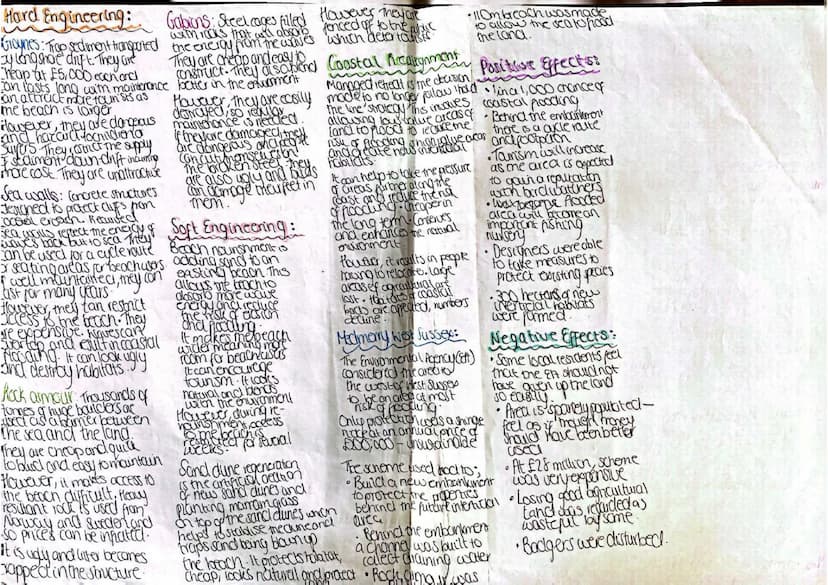 Hard Engineering:
Groynes: Trap sediment transported
by longshore drift. They are
cheap at £5,000 each and
can last long with maintenance
can attract more tourists as
the beach is larger
However, they are dangerous
and
surfers. They restrict the supply
of sediment down-drift incurring
more cost. They are unattractive
Sea walls: Concrete structures
designed to protect cliffs from
coastal erosion. Recurved
sea walls reflect the energy of
waves back out to sea. They
can be used for a cycle route
or seating areas for beach users
If well maintained, they can
last for many years.
However, they can restrict
access to the beach. They
are expensive.
overtop and result in coastal
flooding. It can look ugly
and destroy habitats.
Rock armour: Thousands of
tonnes of huge boulders are
used as a barrier between
the sea and the land.
They are cheap and quick
to build and easy to maintain
However, it makes access to
the beach difficult. Heavy
resistant rock is used from
Norway and Sweden and
so prices can be inflated.
It is ugly and litter becomes
trapped in the structure.
Gabions: Steel cages filled
with rocks that will absorb
the energy from the waves
They are cheap and easy to
construct. They also blend
better in the environment
However, they are easily
destroyed, so regular
maintenance is needed
If they are damaged, they
are dangerous and people
can cut themselves on
the broken steel. They
are also ugly and birds
can damage their feet in
them.
Soft Engineering:
Beach nourishment is
adding sand to an
existing beach. This
allows the beach to
absorb more wave
energy and reduce
the risk of erosion
and flooding.
It makes the beach
wider meaning more
room for beach users
It can encourage
tourism. It looks
natural and blends
with the environment
However, during re-
nourishment, access
to the beach is
restricted for several
weeks.
Sand dune regeneration
is the artificial creation
of new sand dunes and
planting marram grass
on top of the sand dunes which
helps to stabilise the dune and
traps sand being blown up
the beach. It protects habitats,
cheap, looks natural and protect
However they are
fenced off to the public
when
Coastal Realignment
Managed retreat is the decision
made to no longer follow 'hold
the line' strategy. This involves
allowing low value areas of
land to flood to reduce the
risk of flooding in high value areas
and create new intertidal
habitats.
Can help to take the pressure
of areas further along the
coast and reduce the risk
of flooding. Cheaper in
the long term. Conserves
and enhances the natural
environment.
However, it results in people
having to relocate. Large
areas of agricultural are
lost. Habitats of coastal
birds are affected, numbers
decline.
Medmerry West Sussex:
The Environmental Agency (EA)
considered the area to
the west of West Sussex
to be an area at most
risk of flooding.
Only protection was a shingle
ridge at an annual price of
£200,000 - unsustainable
The scheme used rock to;
• Build a new embankment
to protect the properties
behind the future intertidal
area
• Behind the embankment
a channel was built to
collect draining water
• Rock armour was
• 110m breach was made
to allow the sea to flood
the land.
Positive Effects:
• 1 in a 1,000 chance of
coastal flooding
• Behind the embankment
there is a cycle route
and footpath.
• Tourism will increase
as the area is expected
to gain a reputation
with bird watchers
flooded
area will become an
important fishing
nursery
• Designers were able
to take measures to
protect existing species
• 300 hectares of new
intertidal habitats
were formed.
Negative Effects:
• Some local residents feel
that the EA should not
have given up the land
so easily.
• Area is sparsely populated —
feel as if the money
should have been better
used
• At £28 million, scheme
was very expensive
• Losing good agricultural
land was regarded as
wasteful by some.
• Badgers were disturbed.